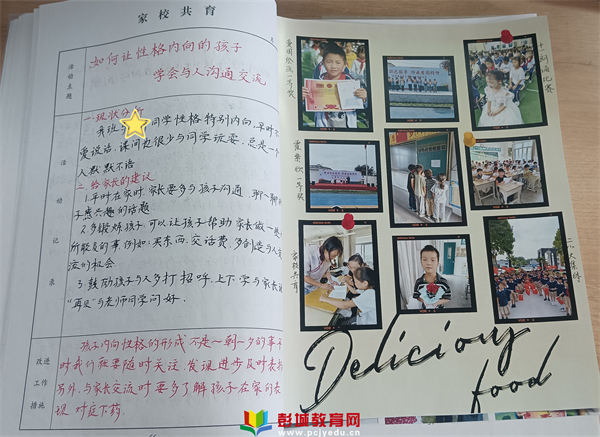 家校共育
活动主题
如何让性格内向的孩子
学会与人沟通交流
活动记录
一.现状分析
我班 同学性格特别内向,平时不
爱说话,课间也很少与同学玩耍,总是一个
人默默不语
二.给家长的建议
1.平时在家时,家长要多与孩子沟通,聊聊
子感兴趣的话题
2.多锻炼孩子,可以让孩子帮助家长做一些
所能及的事,例如:买东西,交话费,多创造与人
流的机会
3.鼓励孩子与人多打招呼,上下学与家长说
"再见"与老师同学问好.
改进工作措施
孩子内向性格的形成不是一朝一夕的事
时我们就要随时关注,发现进步及时表扬
另外,与家长交流时要多了解孩子在家的表
现 对症下药.
一等奖
一等奖
家校共育
Deliciouy
food
彭城教育网
www.pcjyedu.cn